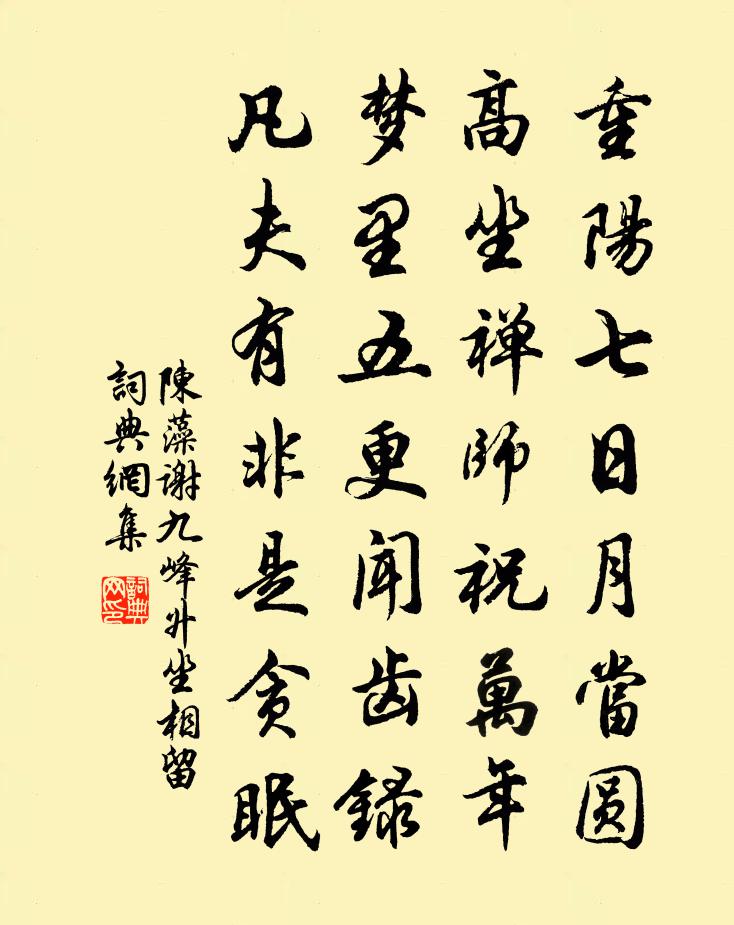 重陽七日月當圆
高坐禅师祝萬年
梦里五更闻齿録
凡夫有非是贪眠
陳藻谢九峰升坐相留
詞典網集
詞典網印